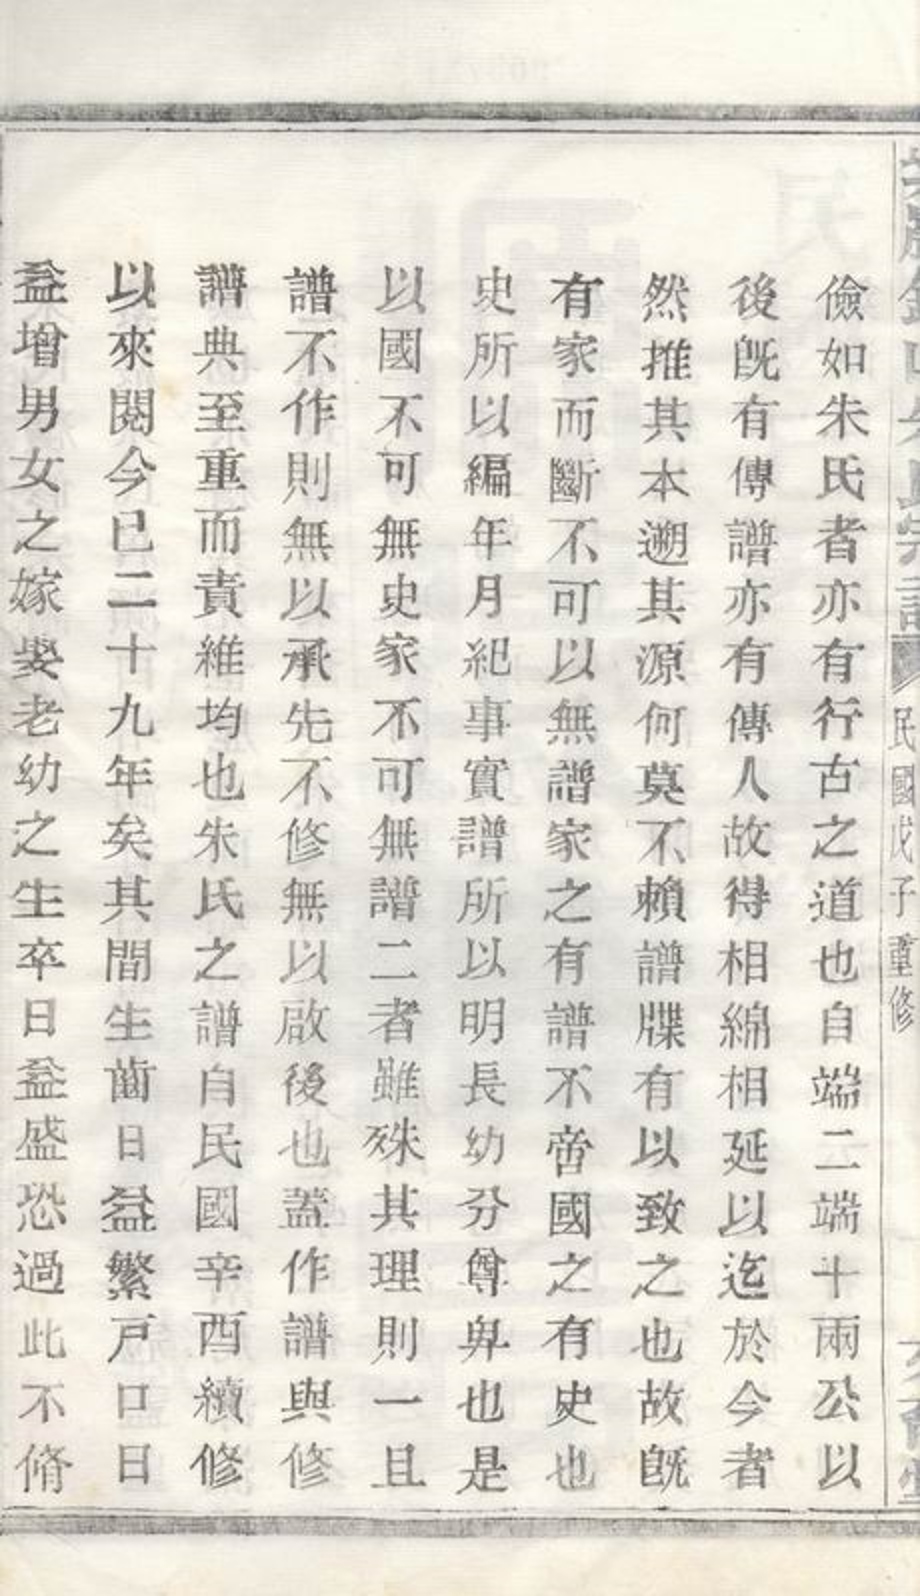 民國戊子重修
儉如朱氏者亦有行古之道也自端二端十兩公以
後旣有傳譜亦有傳人故得相綿相延以迄於今者
然推其本遡其源何莫不賴譜牒有以致之也故旣
有家而斷不可以無譜家之有譜不啻國之有史也
史所以編年月紀事實譜所以明長幼分尊卑也是
以國不可無史家不可無譜二者雖殊其理則一且
譜不作則無以承先不修無以啟後也蓋作譜與修
譜典至重而責維均也朱氏之譜自民國辛酉續修
以來閱今已二十九年矣其間生齒日益繁戶口日
益增男女之嫁娶老幼之生卒日益盛恐過此不脩